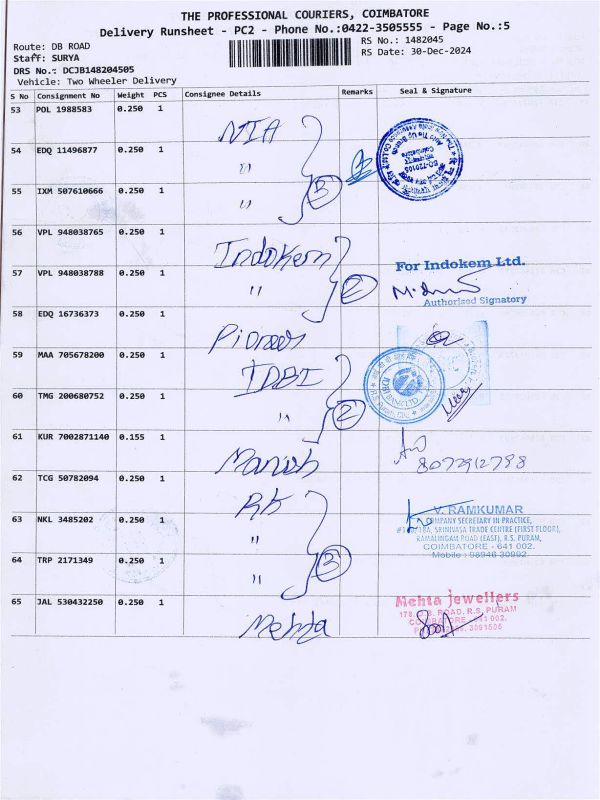 THE PROFESSIONAL COURIERS, COIMBATORE
Delivery Runsheet - PC2 - Phone No.:0422-3505555 - Page No.:5
Route: DB ROAD
RS No.: 1482045
Staff: SURYA
RS Date: 30-Dec-2024
DRS No.: DCJB148204505
Vehicle: Two Wheeler Delivery
S No Consignment No Weight PCS Consignee Details Remarks Seal & Signature
53 POL 1988583 0.250 1 NIA
54 EDQ 11496877 0.250 1 " 3
55 IXM 507610666 0.250 1 "
56 VPL 948038765 0.250 1 Indokem
For Indokem Ltd.
57 VPL 948038788 0.250 1 " 2
Authorised Signatory
58 EDQ 16736373 0.250 1 Pioneer
59 MAA 705678200 0.250 1 IDBI
60 TMG 200680752 0.250 1 " 2
61 KUR 7002871140 0.155 1 Manish
8072912798
62 TCG 50782094 0.250 1 RK
V. RAMKUMAR
63 NKL 3485202 0.250 1 "
COMPANY SECRETARY IN PRACTICE,
SRINIVASA TRADE CENTRE (FIRST FLOOR),
RAMALINGAM ROAD (EAST), R.S. PURAM,
COIMBATORE - 641 002.
Mobile : 98946 30992
64 TRP 2171349 0.250 1 " 3
65 JAL 530432250 0.250 1 Mehta
Mehta jewellers
178, D.B. ROAD, R.S. PURAM
COIMBATORE - 641 002.